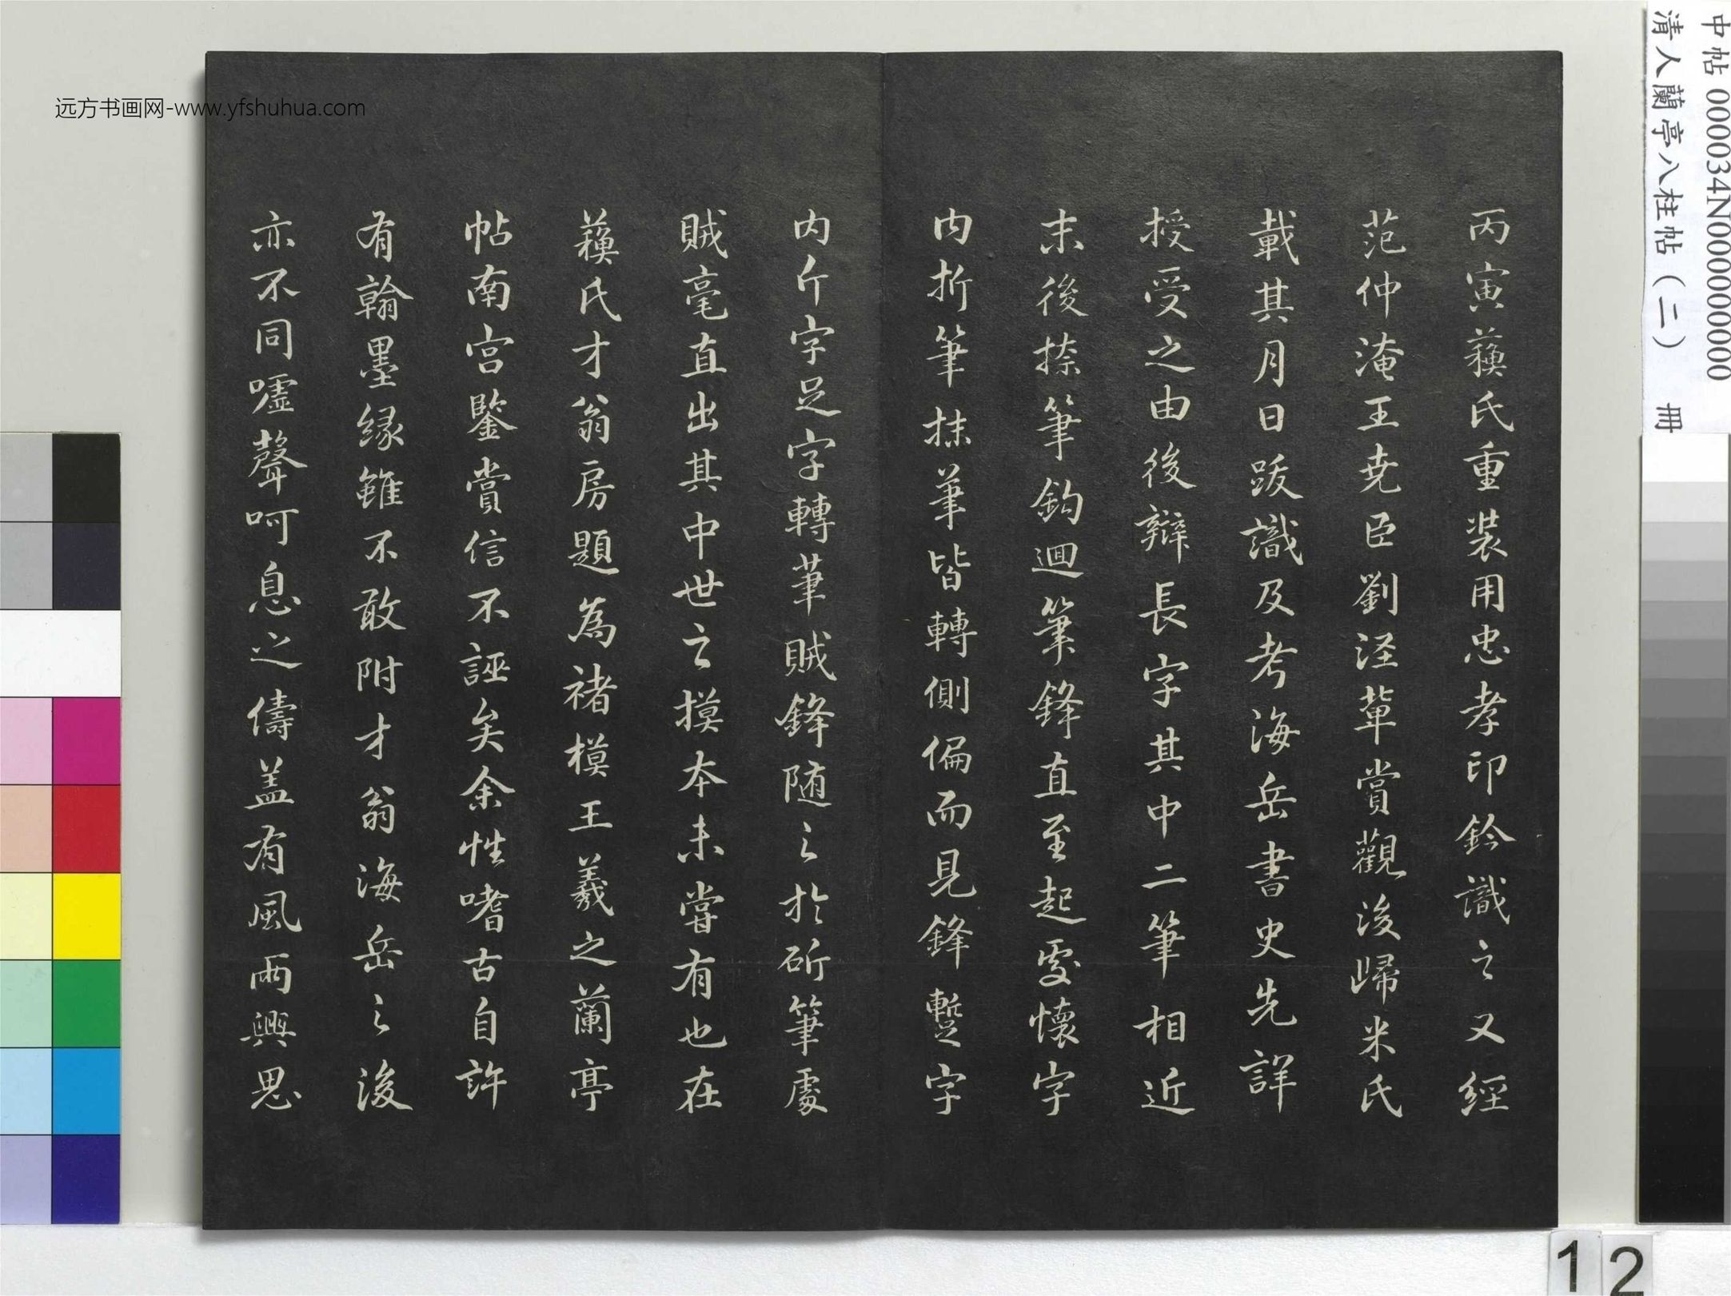 丙寅蘓氏重装用忠孝印鈐識之又經
范仲淹王尭臣劉涇軰賞觀後歸米氏
載其月日跋識及考海岳書史先詳
授受之由後辯長字其中二筆相近
末後捺筆鈎迴筆鋒直至起處懷字
内折筆抹筆皆轉側偏而見鋒蹔字
内斤字足字轉筆賊鋒随之於斫筆處
賊毫直出其中世之摸本未嘗有也在
蘓氏才翁房題為褚模王羲之蘭亭
帖南宫鑒賞信不誣矣余性嗜古自許
有翰墨缘雖不敢附才翁海岳之後
亦不同嘘聲呵息之儔盖有風雨興思
远方书画网-www.yfshuhua.com
中帖000034N000000000
清人蘭亭八柱帖（二） 冊
12